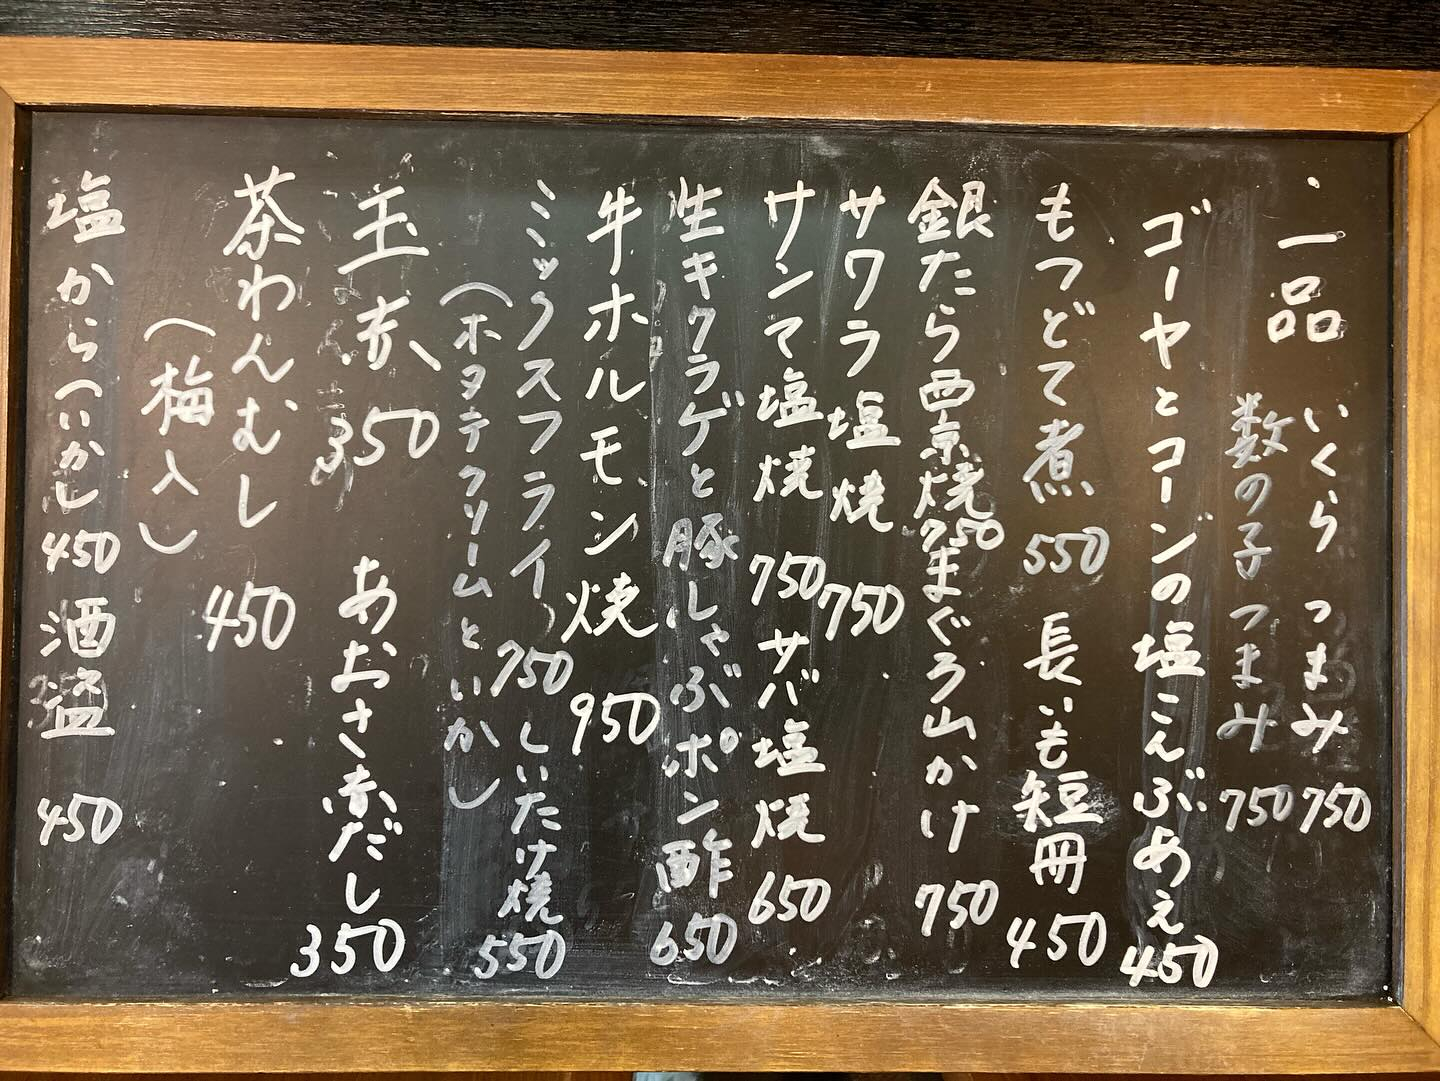 ・一品 いくら つまみ 750
数の子 つまみ 750
ゴーヤとコーンの塩こんぶあえ 450
もつどて煮 550 長いも短冊 450
銀たら西京焼 750 まぐろ山かけ 750
サワラ塩焼 750
サンマ塩焼 750 サバ塩焼 650
生キクラゲと豚しゃぶポン酢 650
牛ホルモン焼 950
ミックスフライ 750 しいたけ焼 550
(ホタテクリームといか)
玉衣 350 あおさ赤だし 350
茶わんむし 450
(梅入)
塩から(いか) 450 酒盗 450